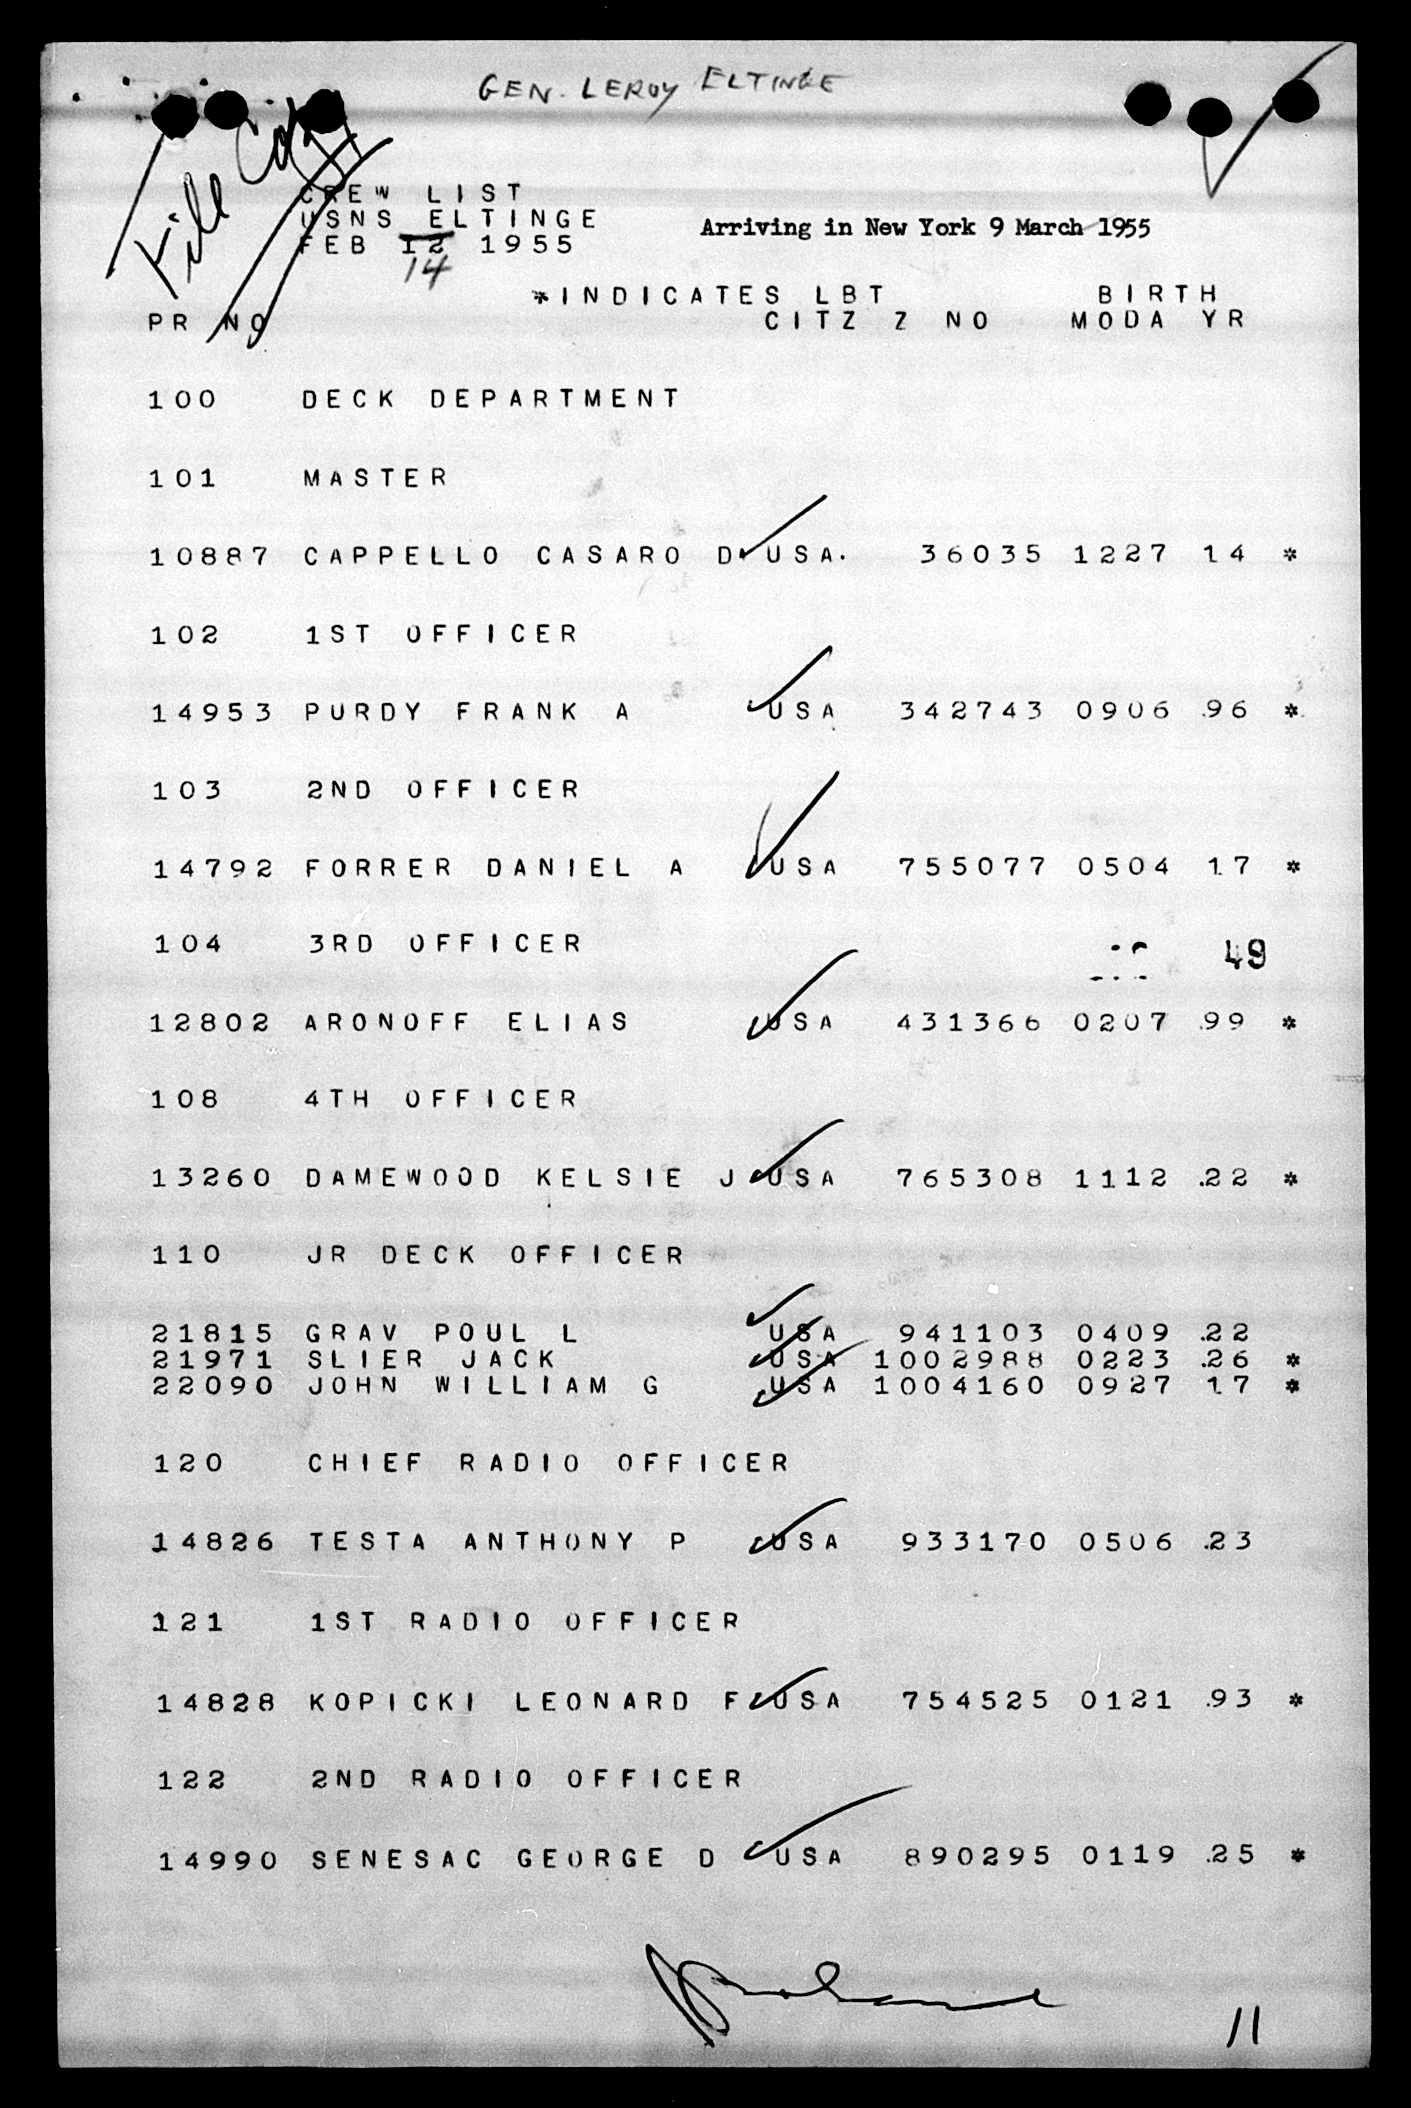 GEN. LEROY ELTINGE
File Copy
CREW LIST
USNS ELTINGE
FEB 12 1955
14
Arriving in New York 9 March 1955
*INDICATES LBT BIRTH
PR NO CITZ Z NO MODA YR
100 DECK DEPARTMENT
101 MASTER
10887 CAPPELLO CASARO D USA. 36035 1227 14 *
102 1ST OFFICER
14953 PURDY FRANK A USA 342743 0906 96 *
103 2ND OFFICER
14792 FORRER DANIEL A USA 755077 0504 17 *
104 3RD OFFICER 49
12802 ARONOFF ELIAS USA 431366 0207 99 *
108 4TH OFFICER
13260 DAMEWOOD KELSIE J USA 765308 1112 22 *
110 JR DECK OFFICER
21815 GRAV POUL L USA 941103 0409 22
21971 SLIER JACK USA 1002988 0223 26 *
22090 JOHN WILLIAM G USA 1004160 0927 17 *
120 CHIEF RADIO OFFICER
14826 TESTA ANTHONY P USA 933170 0506 23
121 1ST RADIO OFFICER
14828 KOPICKI LEONARD F USA 754525 0121 93 *
122 2ND RADIO OFFICER
14990 SENESAC GEORGE D USA 890295 0119 25 *
11